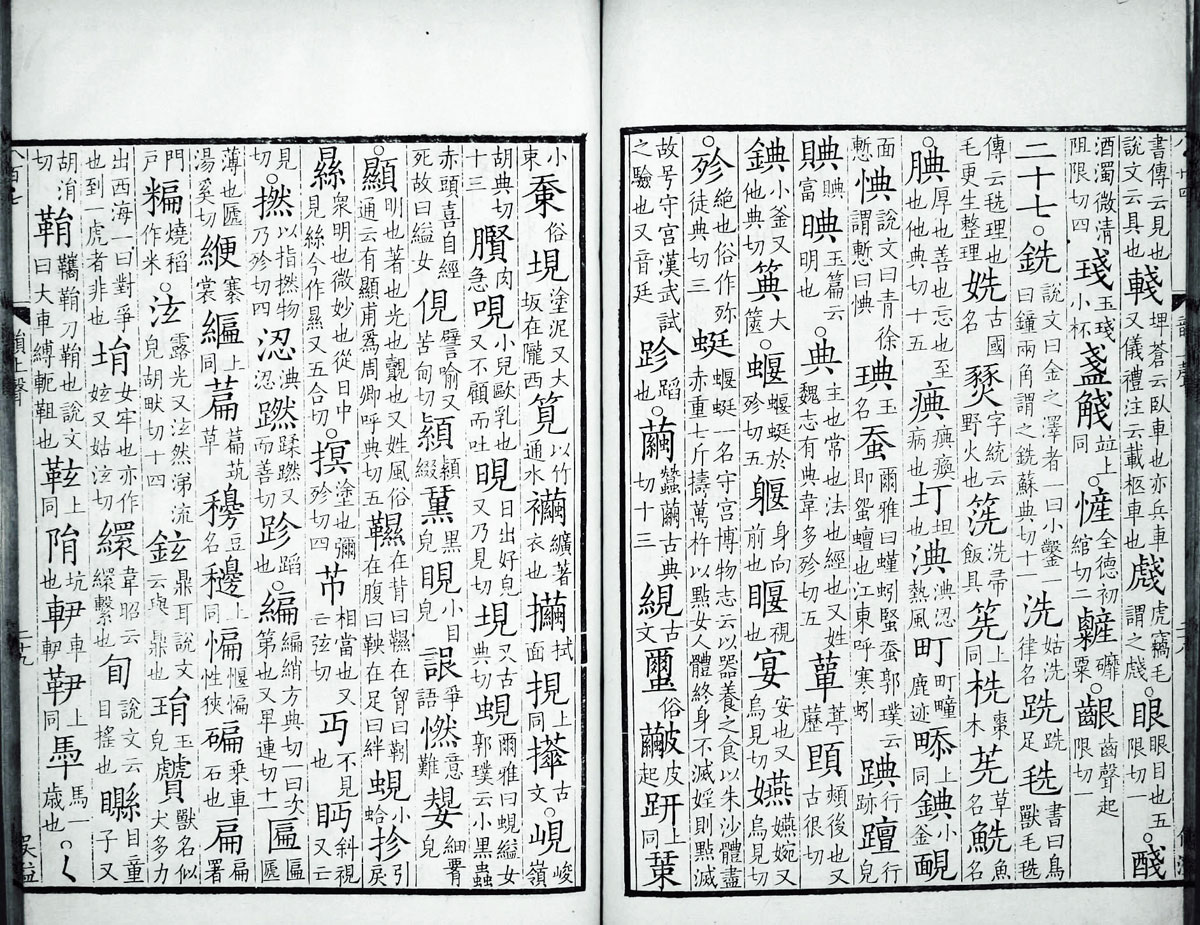 書傳云見也説文云具也輚埤蒼云臥車也亦兵車又儀禮注云載柩車也虥虎竊毛謂之虥○眼眼目也五限切一○醆
酒濁微清阻限切四琖玉琖小杯盞䱠並上同○㦃全德初綰切二䊲䃪粟○齦齒聲起限切一
二十七○銑説文曰金之澤者一曰小鑿一曰鐘兩角謂之銑蘇典切十一洗姑洗律名跣跣足毨書曰鳥獸毛毨
傳云毨理也毛更生整理姺古國名燹字統云野火也筅洗帚飯具箲上同㭠棗木茺草名鮅魚名
○腆厚也善也忘也至也他典切十五痶痶瘓病也㘱坦也淟淟涊熱風町町畽鹿迹畻上同錪小釜䩄
面慙㥏説文曰青徐謂慙曰㥏琠玉名蚕爾雅曰螼蚓蜸蚕郭璞云即蛩蟺也江東呼寒蚓䠄行跡䡀行皃
賟賟富晪玉篇云明也○典主也常也法也經也又姓魏志有典韋多殄切五蕇葶藶䫖頰後也又古很切
錪小釜又他典切䉋大篋○蝘蝘蜓於殄切七躽身向前也䁙視也宴安也又烏見切嬿嬿婉又烏見切
○殄絶也俗作弥徒典切三蜓蝘蜓一名守宮博物志云以器養之食以朱沙體盡赤重七斤擣萬杵以點女人體終身不滅婬則點滅
故号守宮漢武試之驗也又音廷跈蹈○繭蠶繭古典切十三絸古文蠒俗𤿧皮起趼上同䅐
小束𥟔俗垷塗泥又大坂在隴西筧以竹通水襺纊著衣也㩰拭面挸上同㩰古文○峴峻嶺
胡典切十三臔肉急哯小兒歐乳也又不顧而吐晛日出好皃又乃見切垷又古典切蜆爾雅曰蜆縊女郭璞云小黑蟲
赤頭喜自經死故曰縊女俔譬喻又苦甸切䋗䋗綴䵡黑皃睍小目皃䛳爭語㦓意難婱細腰皃
○顯明也著也光也覿也又姓風俗通云有顯甫爲周卿呼典切五韅在背曰韅在胷曰靷在腹曰鞅在足曰絆蜆小蛤抮引戾
㬎衆明也微妙也從日中見絲今作㬎又五合切○摸塗也彌殄切四芇相當也又亡弦切丏不見也眄斜視又云
見切○撚以指撚物乃殄切四涊淟涊蹨蹂蹨又而善切跈蹈也○編編絹方典切一曰次第也又卑連切十一匾匾㔸
薄也㔸湯奚切緶褰裳緶上同萹萹茿草䅹豆名穮上同惼惼㥮性狹碥乗車石也扁扁署
門戸糄燒稻作米○泫露光又泫然涕流皃胡畎切十四鉉鼎耳説文云舉鼎也琄玉皃贙獸名似犬多力
出西海一曰對爭也到虎者非也埍女牢也亦作㚲又姑泫切繯韋昭云繯繫也㫬説文云目搖也䜌目童子又
胡涓切鞙韉鞙刀鞘也説文曰大車縛軛靼也䩙上同䧎坑也䡅車䡅䩙上同馵馬一歳也○く